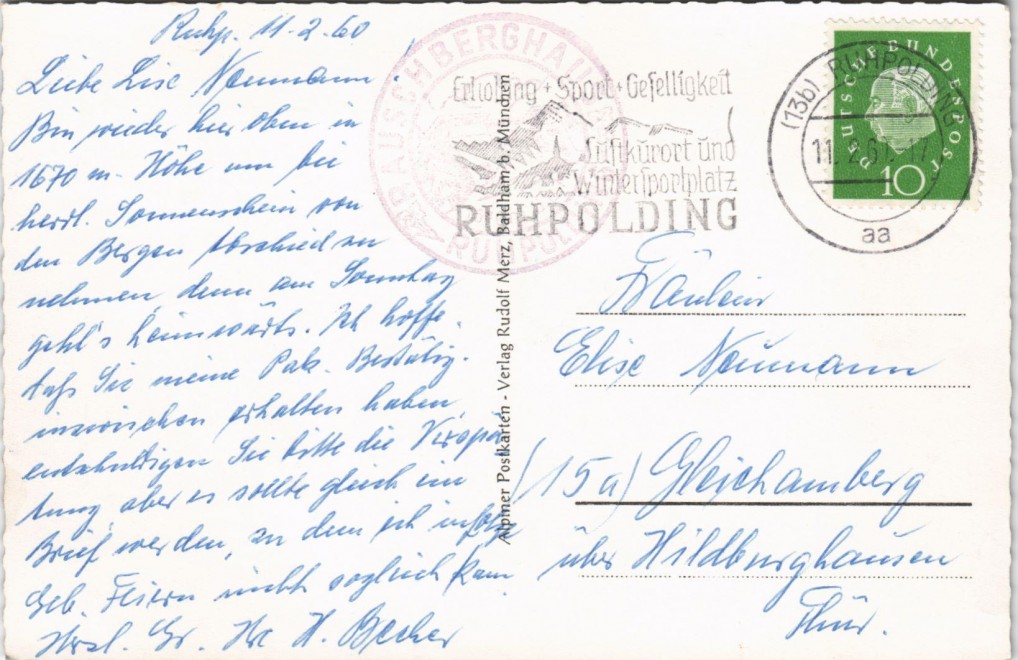 Ruhp. 11-2-60
Liebe Lise Neumann!
Bin wieder hier oben in
1670 m. Höhe um bei
herrl. Sonnenschein von
den Bergen Abschied zu
nehmen, denn am Sonntag
geht's heimwärts. Ich hoffe,
daß Sie meine Pak. Bestätig.
inzwischen erhalten haben,
entschuldigen Sie bitte die Verspä
tung aber es sollte gleich ein
Brief werden, zu dem ich infolge
Geb. Feiern nicht sogleich kam.
Herzl. Gr. Ihr H. Becher
RAUSCHBERGHAUS
RUHPOLDING
Erholung + Sport + Geselligkeit
Luftkurort und
Wintersportplatz
RUHPOLDING
Alpiner Postkarten - Verlag Rudolf Merz, Baldham b. München
DEUTSCHE BUNDESPOST
10
(13b) RUHPOLDING
11.2.6
17
aa
Fräulein
Elise Neumann
(15a) Gleichamberg
über Hildburghausen
Thür.